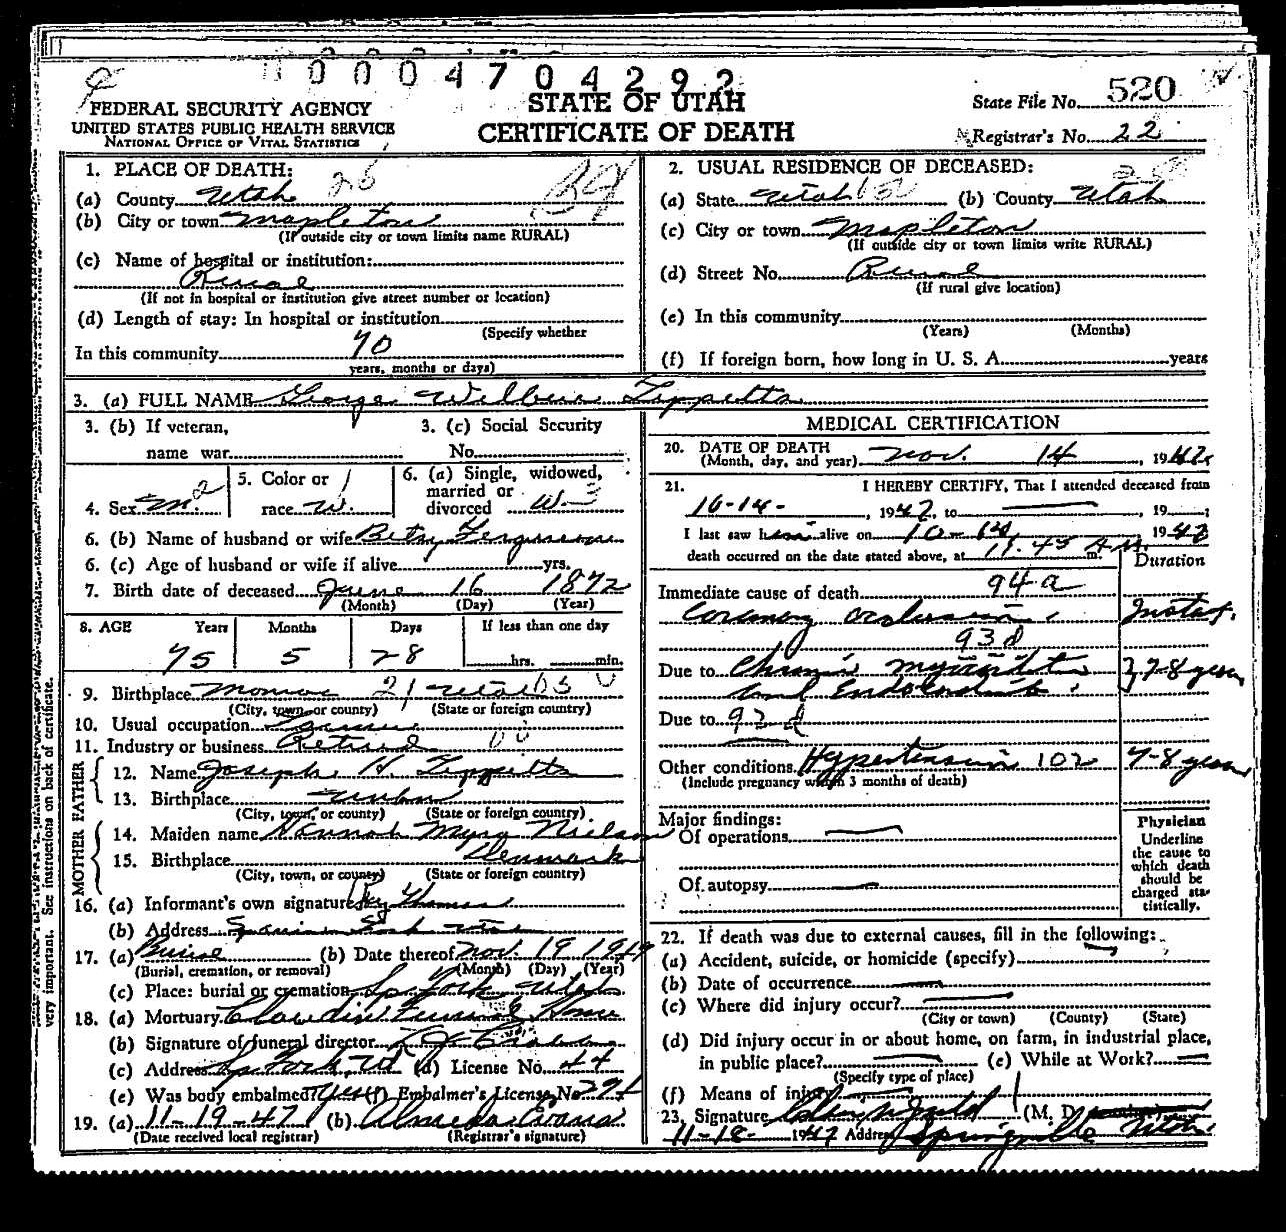 00004704292
FEDERAL SECURITY AGENCY
UNITED STATES PUBLIC HEALTH SERVICE
NATIONAL OFFICE OF VITAL STATISTICS
STATE OF UTAH
CERTIFICATE OF DEATH
State File No. 520
Registrar's No. 22
1. PLACE OF DEATH:
(a) County Utah 25
(b) City or town Mapleton
(If outside city or town limits name RURAL)
(c) Name of hospital or institution:
Rural
(If not in hospital or institution give street number or location)
(d) Length of stay: In hospital or institution
(Specify whether
In this community 70
years, months or days)
2. USUAL RESIDENCE OF DECEASED:
(a) State Utah (b) County Utah
(c) City or town Mapleton
(If outside city or town limits write RURAL)
(d) Street No. Rural
(If rural give location)
(e) In this community
(Years) (Months)
(f) If foreign born, how long in U. S. A. years
3. (a) FULL NAME George Wilbur Tippetts
3. (b) If veteran,
name war
3. (c) Social Security
No.
4. Sex M. 2
5. Color or 1
race W.
6. (a) Single, widowed,
married or
divorced W-3
6. (b) Name of husband or wife Betsy Ferguson
6. (c) Age of husband or wife if alive yrs.
7. Birth date of deceased June 16 1872
(Month) (Day) (Year)
8. AGE Years Months Days If less than one day
75 5 28 hrs. min.
9. Birthplace Monroe 21 Utah
(City, town, or county) (State or foreign country)
10. Usual occupation Farmer
11. Industry or business Retired
FATHER
12. Name Joseph H. Tippetts
13. Birthplace
(City, town, or county) (State or foreign country)
MOTHER
14. Maiden name Hannah Nielson
15. Birthplace Denmark
(City, town, or county) (State or foreign country)
16. (a) Informant's own signature Ray Thomas
(b) Address Spanish Fork Utah
17. (a) Burial (b) Date thereof Nov. 19 1947
(Burial, cremation, or removal) (Month) (Day) (Year)
(c) Place: burial or cremation Sp. Fork Utah
18. (a) Mortuary Claudin Funeral Home
(b) Signature of funeral director
(c) Address Sp. Fork, Ut (d) License No. 44
(e) Was body embalmed? Yes (f) Embalmer's License No. 294
19. (a) 11-19-47 (b) Almeda Evans
(Date received local registrar) (Registrar's signature)
very important. See instructions on back of certificate.
MEDICAL CERTIFICATION
20. DATE OF DEATH
(Month, day, and year) Nov. 14, 1947
21. I HEREBY CERTIFY, That I attended deceased from
10-14-, 1947, to , 19 ;
I last saw him alive on 10-14 1947
death occurred on the date stated above, at 11:45 A m.
Duration
94a
Immediate cause of death
Coronary occlusion. Instat.
93d
Due to Chronic Myocarditis 7-8 years
and Endocarditis.
Due to 92d
Other conditions Hypertension 102 7-8 years
(Include pregnancy within 3 months of death)
Major findings:
Of operations
Of autopsy
Physician
Underline
the cause to
which death
should be
charged sta-
tistically.
22. If death was due to external causes, fill in the following:
(a) Accident, suicide, or homicide (specify)
(b) Date of occurrence
(c) Where did injury occur?
(City or town) (County) (State)
(d) Did injury occur in or about home, on farm, in industrial place,
in public place? (e) While at Work?
(Specify type of place)
(f) Means of injury
23. Signature (M. D.
11-18- 1947 Address Springville Utah